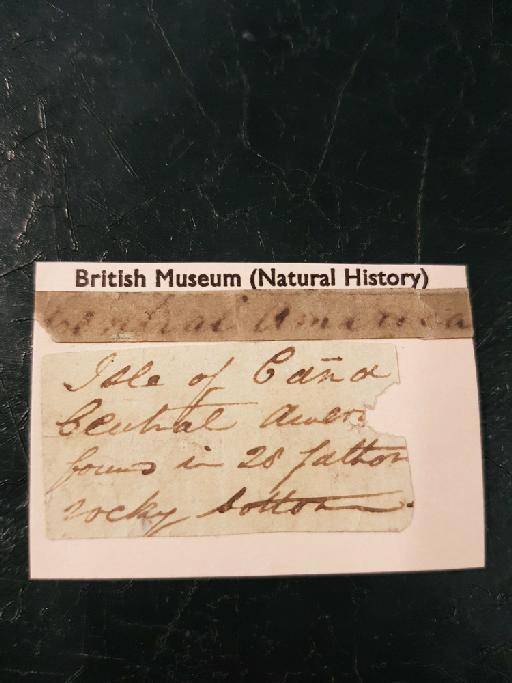 British Museum (Natural History)
Central America
Isle of Caña
Central Amer
found in 28 fathom
rocky bottom.